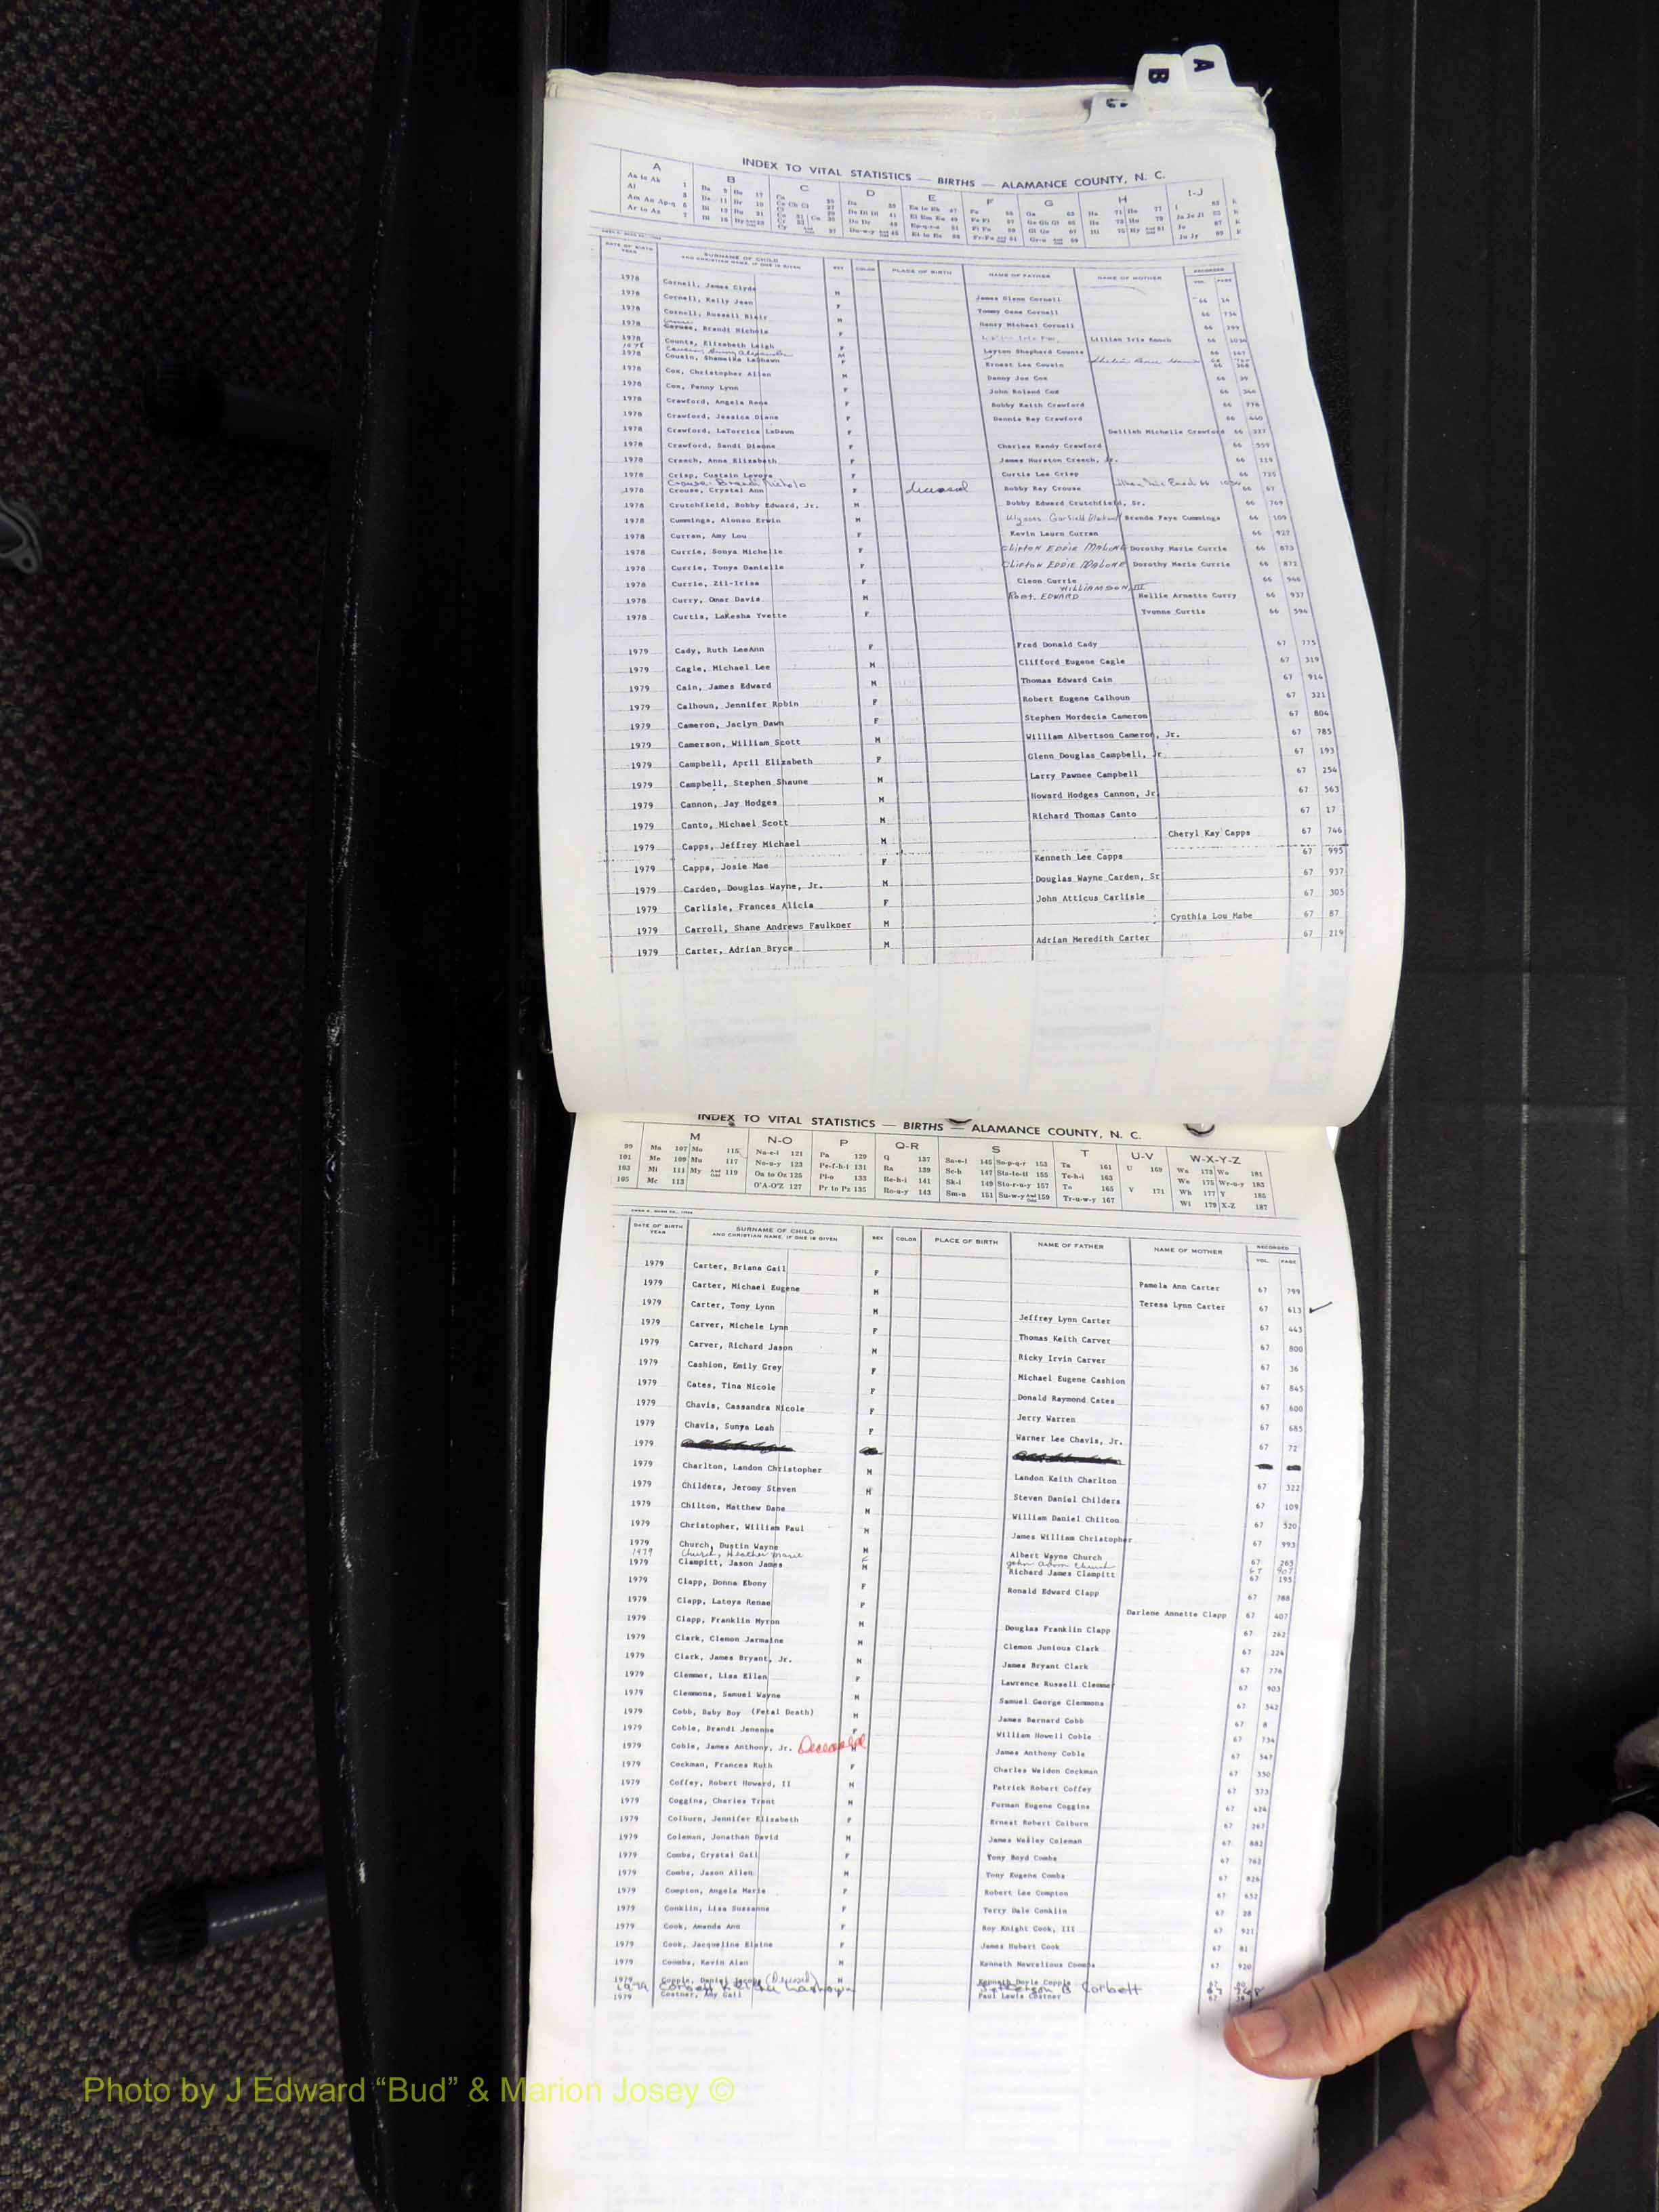 A
B
C
INDEX TO VITAL STATISTICS — BIRTHS — ALAMANCE COUNTY, N. C.
A B C D E F G H I-J
DATE OF BIRTH YEAR SURNAME OF CHILD AND CHRISTIAN NAME, IF ONE IS GIVEN SEX COLOR PLACE OF BIRTH NAME OF FATHER NAME OF MOTHER RECORDED VOL. PAGE
1978 Cornell, James Clyde M James Glenn Cornell 66 14
1978 Cornell, Kelly Jean F Tommy Gene Cornell 66 734
1978 Cornell, Russell Blair M Henry Michael Cornell 66 299
1978 Brandi Nichole F Lillian Iris 66 1034
1978 Counts, Elizabeth Leigh F Layton Shepherd Counts 66 167
1978 Cousin, Shameika LaShawn F Ernest Lee Cousin 66 368
1978 Cox, Christopher Allen M Danny Joe Cox 66 39
1978 Cox, Penny Lynn F John Roland Cox 66
1978 Crawford, Angela Rose F Bobby Keith Crawford 66 778
1978 Crawford, Jessica Diane F Dennis Ray Crawford 66 440
1978 Crawford, LaTorrica LaDawn F Delilah Michelle Crawford 66 327
1978 Crawford, Sandi Dianne F Charles Randy Crawford 66 559
1978 Creech, Anna Elizabeth F James Hurston Creech, Jr. 66 119
1978 Crisp, Custain Levoya F Curtis Lee Crisp 66 725
Crouse, Brandi Nichole 66 1034
1978 Crouse, Crystal Ann F deceased Bobby Ray Crouse 66 67
1978 Crutchfield, Bobby Edward, Jr. M Bobby Edward Crutchfield, Sr. 66 769
1978 Cummings, Alonzo Erwin M Ulysses Garfield Brenda Faye Cummings 66 109
1978 Curran, Amy Lou F Kevin Laurn Curran 66 927
1978 Currie, Sonya Michelle F Clifton EDDIE MALONE Dorothy Marie Currie 66 873
1978 Currie, Tonya Danielle F Clifton EDDIE MALONE Dorothy Marie Currie 66 872
1978 Currie, Zil-Irisa F Cleon Currie 66 946
1978 Curry, Omar David M Robt. EDWARD WILLIAMSON, III Nellie Arnette Curry 66 937
1978 Curtis, LaKesha Yvette F Yvonne Curtis 66 594
1979 Cady, Ruth LeeAnn F Fred Donald Cady 67 775
1979 Cagle, Michael Lee M Clifford Eugene Cagle 67 319
1979 Cain, James Edward M Thomas Edward Cain 67 914
1979 Calhoun, Jennifer Robin F Robert Eugene Calhoun 67 321
1979 Cameron, Jaclyn Dawn F Stephen Mordecia Cameron 67 804
1979 Camerson, William Scott M William Albertson Cameron, Jr. 67 785
1979 Campbell, April Elizabeth F Glenn Douglas Campbell, Jr. 67 193
1979 Campbell, Stephen Shaune M Larry Pawnee Campbell 67 254
1979 Cannon, Jay Hodges M Howard Hodges Cannon, Jr 67 563
1979 Canto, Michael Scott M Richard Thomas Canto 67 17
1979 Capps, Jeffrey Michael M Cheryl Kay Capps 67 746
1979 Capps, Josie Mae F Kenneth Lee Capps 67 995
1979 Carden, Douglas Wayne, Jr. M Douglas Wayne Carden, Sr 67 937
1979 Carlisle, Frances Alicia F John Atticus Carlisle 67 305
1979 Carroll, Shane Andrews Faulkner M Cynthia Lou Mabe 67 87
1979 Carter, Adrian Bryce M Adrian Meredith Carter 67 219
INDEX TO VITAL STATISTICS — BIRTHS — ALAMANCE COUNTY, N. C.
M N-O P Q-R S T U-V W-X-Y-Z
99 Ma 107 Mo 115 Na-e-i 121 Pa 129 Q 137 Sa-e-i 145 So-p-q-r 153 Ta 161 U 169 Wa 173 Wo 181
101 Me 109 Mu 117 No-u-y 123 Pe-f-h-i 131 Ra 139 Sc-h 147 Sta-te-ti 155 Te-h-i 163 We 175 Wr-u-y 183
103 Mi 111 My And Odd 119 Oa to Oz 125 Pl-o 133 Re-h-i 141 Sk-l 149 Sto-r-u-y 157 To 165 V 171 Wh 177 Y 185
105 Mc 113 O'A-O'Z 127 Pr to Pz 135 Ro-u-y 143 Sm-n 151 Su-w-y And Odd 159 Tr-u-w-y 167 Wi 179 X-Z 187
DATE OF BIRTH YEAR SURNAME OF CHILD AND CHRISTIAN NAME, IF ONE IS GIVEN SEX COLOR PLACE OF BIRTH NAME OF FATHER NAME OF MOTHER RECORDED VOL. PAGE
1979 Carter, Briana Gail F Pamela Ann Carter 67 799
1979 Carter, Michael Eugene M Teresa Lynn Carter 67 613
1979 Carter, Tony Lynn M Jeffrey Lynn Carter 67 443
1979 Carver, Michele Lynn F Thomas Keith Carver 67 800
1979 Carver, Richard Jason M Ricky Irvin Carver 67 36
1979 Cashion, Emily Grey F Michael Eugene Cashion 67 845
1979 Cates, Tina Nicole F Donald Raymond Cates 67 600
1979 Chavis, Cassandra Nicole F Jerry Warren 67 685
1979 Chavis, Sunya Leah F Warner Lee Chavis, Jr. 67 72
1979
1979 Charlton, Landon Christopher M Landon Keith Charlton 67 322
1979 Childers, Jeromy Steven M Steven Daniel Childers 67 109
1979 Chilton, Matthew Dane M William Daniel Chilton 67 520
1979 Christopher, William Paul M James William Christopher 67 993
1979 Church, Dustin Wayne M Albert Wayne Church 67 263
1979 Church, Heather Marie F John Church 67 907
1979 Clampitt, Jason James M Richard James Clampitt 67 195
1979 Clapp, Donna Ebony F Ronald Edward Clapp 67 788
1979 Clapp, Latoya Renae F Darlene Annette Clapp 67 407
1979 Clapp, Franklin Myron M Douglas Franklin Clapp 67 262
1979 Clark, Clemon Jarmaine M Clemon Junious Clark 67 224
1979 Clark, James Bryant, Jr. M James Bryant Clark 67 774
1979 Clemmer, Lisa Ellen F Lawrence Russell Clemmer 67 903
1979 Clemmons, Samuel Wayne M Samuel George Clemmons 67 542
1979 Cobb, Baby Boy (Fetal Death) M James Bernard Cobb 67 8
1979 Coble, Brandi Jenenne F William Howell Coble 67 734
1979 Coble, James Anthony, Jr. Deceased M James Anthony Coble 67 547
1979 Cockman, Frances Ruth F Charles Weldon Cockman 67 330
1979 Coffey, Robert Howard, II M Patrick Robert Coffey 67 573
1979 Coggins, Charles Trent M Furman Eugene Coggins 67 424
1979 Colburn, Jennifer Elizabeth F Ernest Robert Colburn 67 267
1979 Coleman, Jonathan David M James Wesley Coleman 67 882
1979 Combs, Crystal Gail F Tony Boyd Combs 67 762
1979 Combs, Jason Allen M Tony Eugene Combs 67 826
1979 Compton, Angela Marie F Robert Lee Compton 67 652
1979 Conklin, Lisa Suezanne F Terry Dale Conklin 67 28
1979 Cook, Amanda Ann F Roy Knight Cook, III 67 921
1979 Cook, Jacqueline Elaine F James Hubert Cook 67 81
1979 Coombs, Kevin Alan M Kenneth Newralious Coombs 67 920
1979 Copple, Daniel Jacob (Deceased) M Kenneth Doyle Copple 67
1979 Corbett Jefferson B Corbett 67
1979 Costner, Amy Gail Paul Lewis Costner 67
Photo by J Edward “Bud” & Marion Josey ©